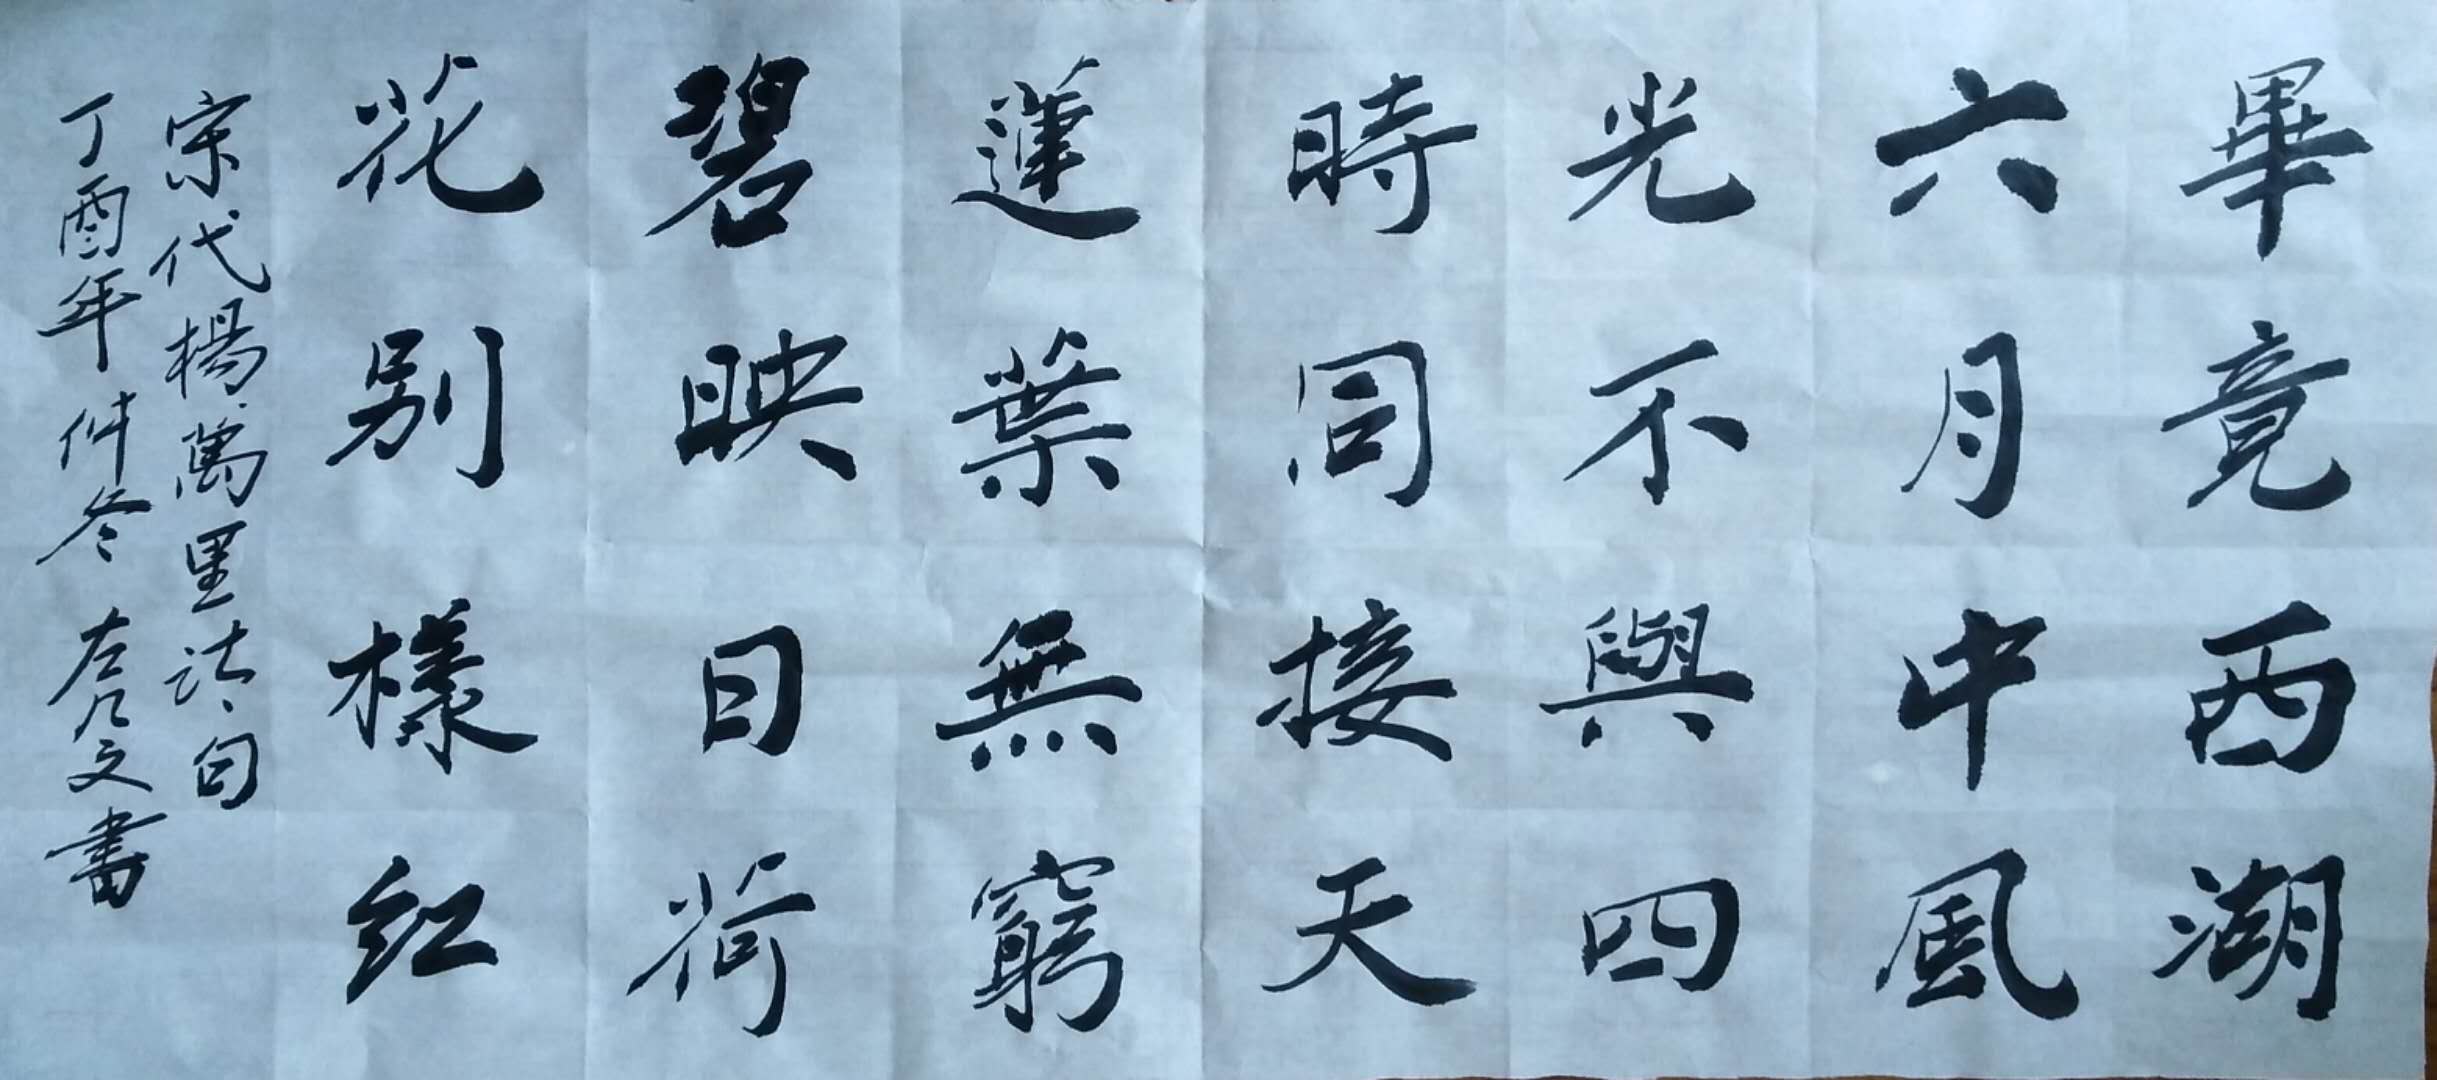 畢竟西湖
六月中風
光不與四
時同接天
蓮葉無窮
碧映日荷
花别樣红
宗代楊萬里诗句
丁酉年仲冬 左凡文書